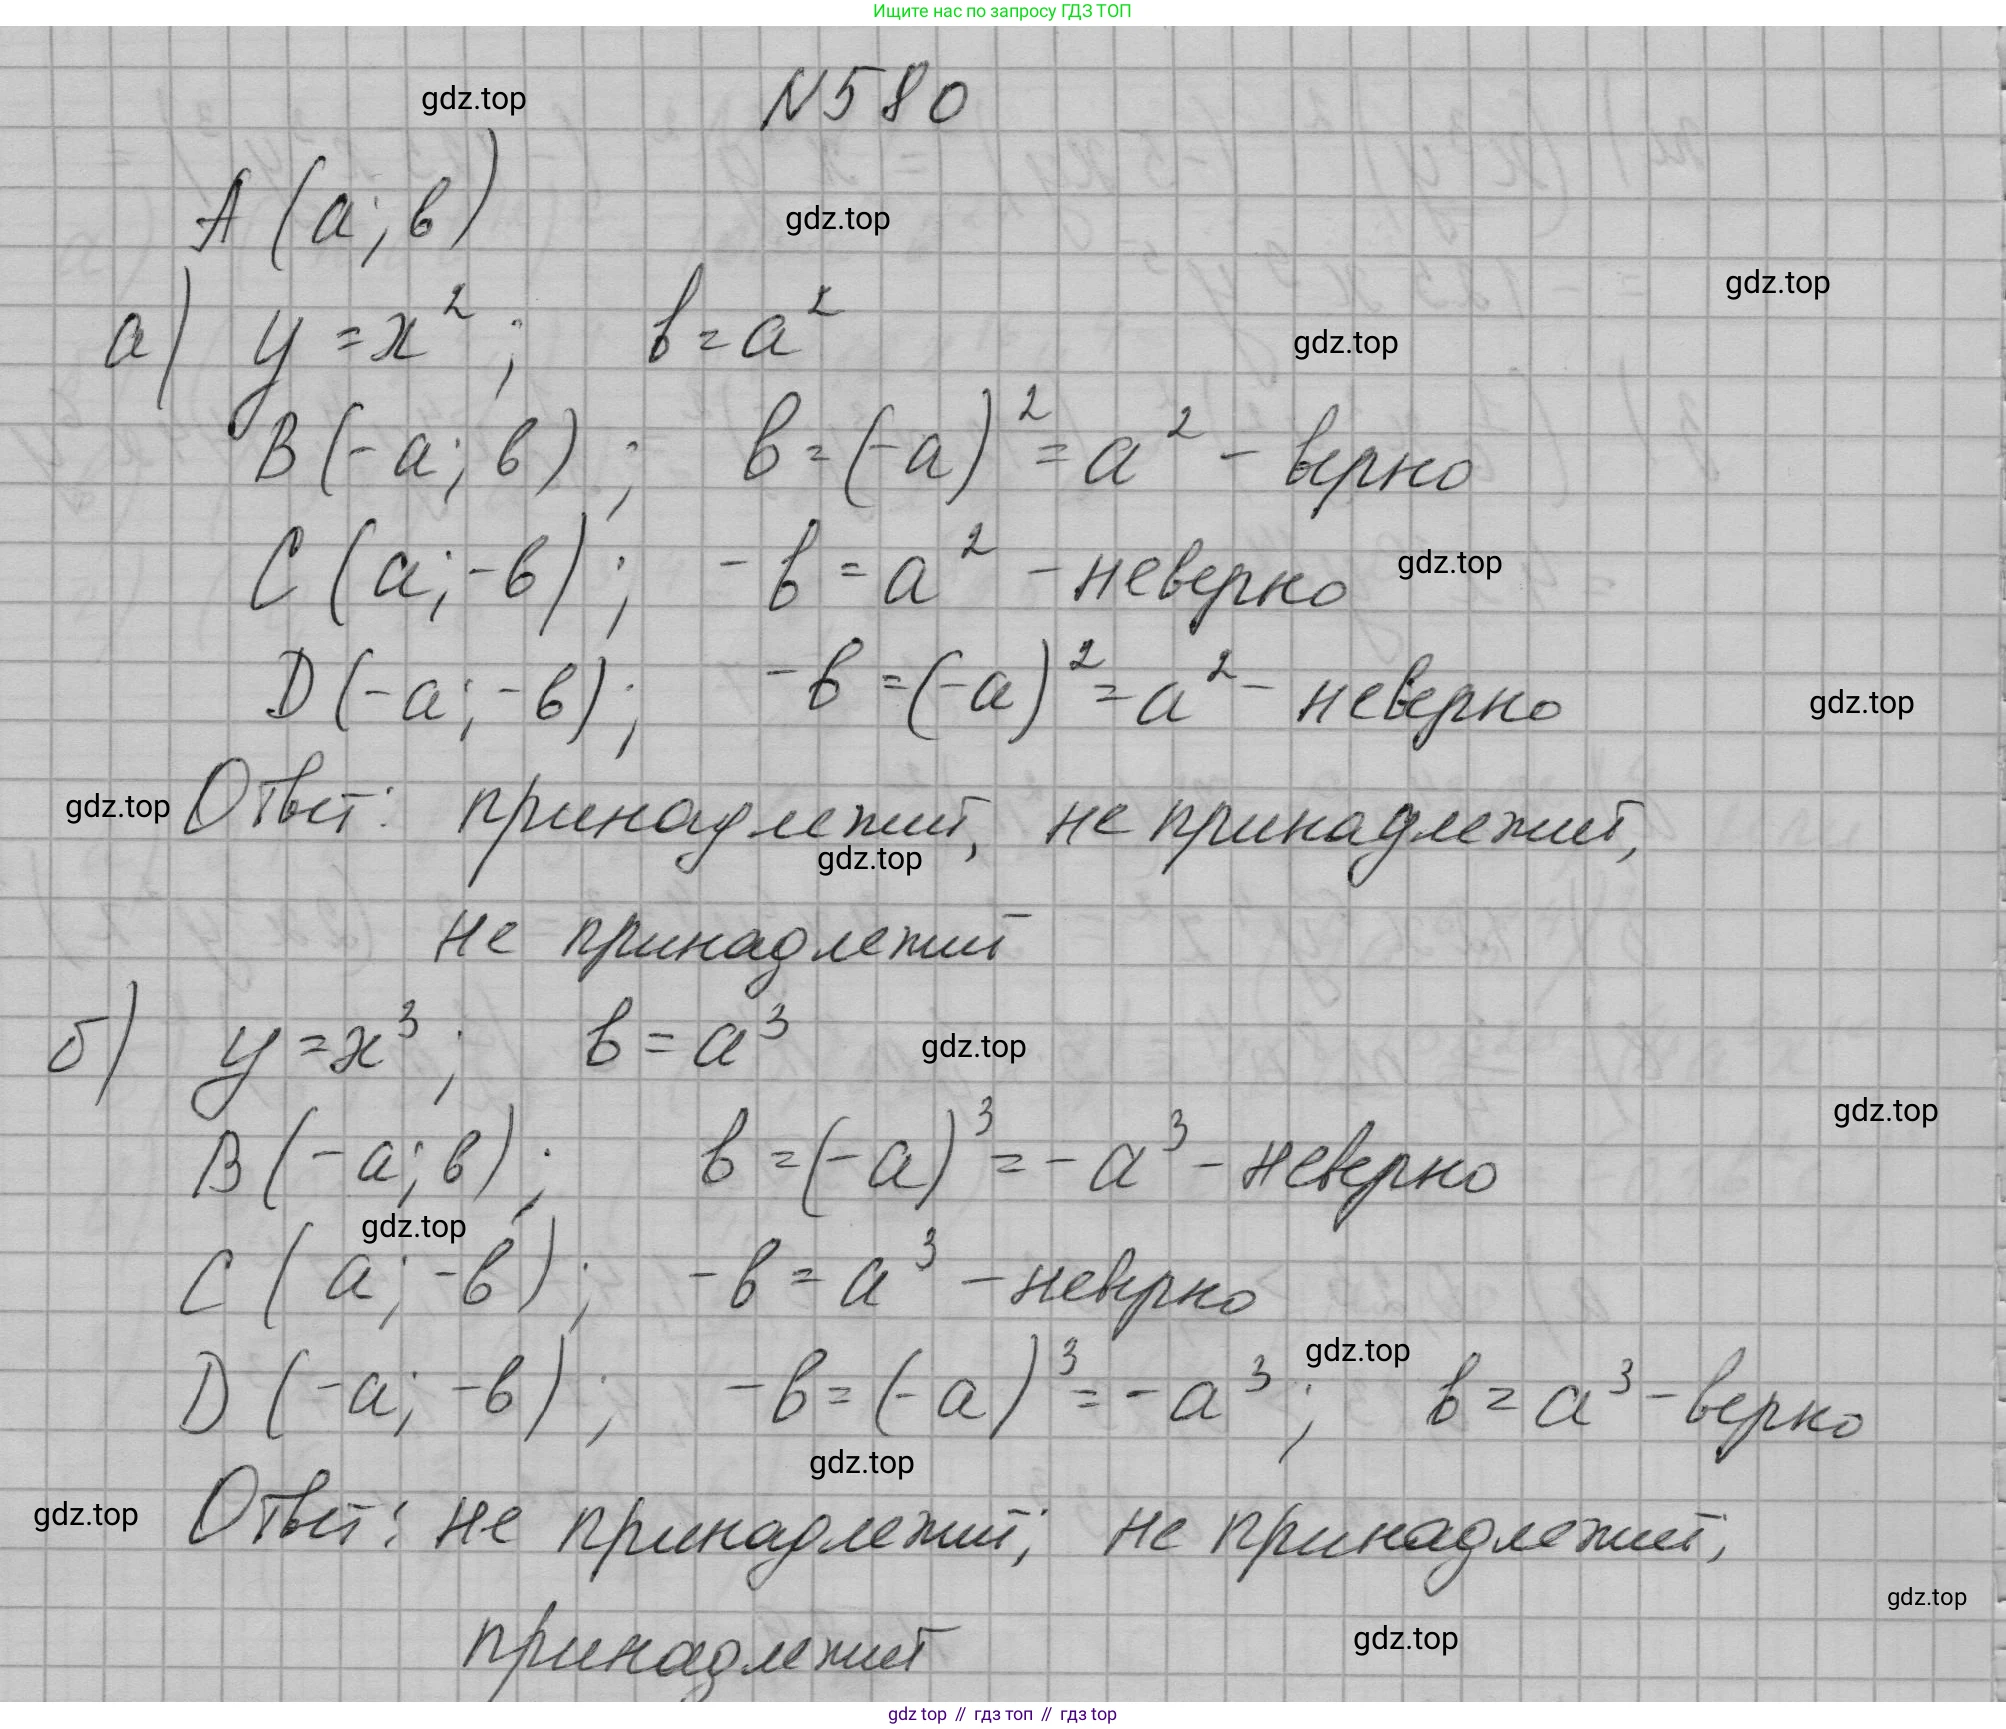 Ищите нас по запросу ГДЗ ТОП
N580
gdz.top
A (a; в)
gdz.top
gdz.top
а) y = x²; в = a²
gdz.top
B (-a; в); в = (-a)² = a² - верно
C (a; -в); -в = a² - неверно
gdz.top
D (-a; -в); -в = (-a)² = a² - неверно
gdz.top
gdz.top
Ответ: принадлежит, не принадлежит,
gdz.top
не принадлежит
б) y = x³; в = a³
gdz.top
gdz.top
B (-a; в); в = (-a)³ = -a³ - неверно
gdz.top
C (a; -в); -в = a³ - неверно
gdz.top
D (-a; -в); -в = (-a)³ = -a³; в = a³ - верно
gdz.top
gdz.top
Ответ: не принадлежит; не принадлежит;
gdz.top
принадлежит
gdz.top
gdz top // гдз топ // gdz top